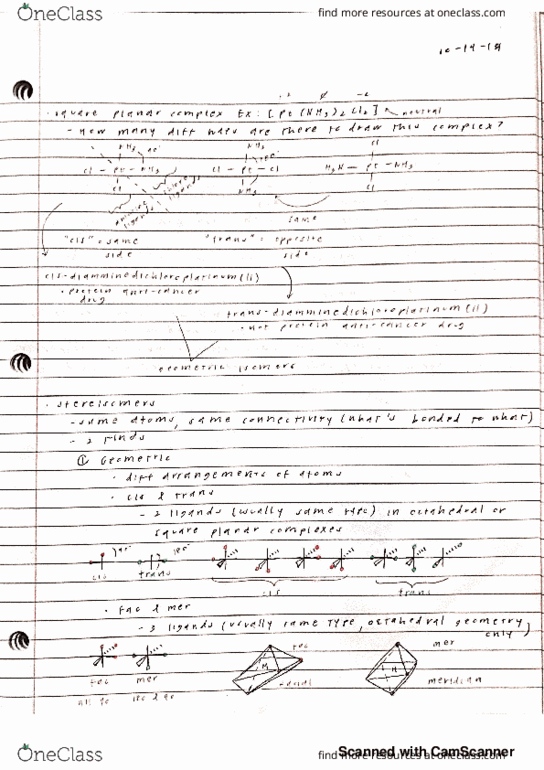 OneClass
find more resources at oneclass.com
10-14-18
+2 0 -2
· square planar complex Ex: [Pt(NH3)2Cl2] neutral
- How many diff ways are there to draw this complex?
NH3 90° NH3 Cl
Cl - Pt - NH3 Cl - Pt - Cl H3N - Pt - NH3
Cl NH3 Cl
ammine ligands chloro ligands
same
"cis" = same side
"trans" = opposite side
cis-diamminedichloroplatinum(II)
· protein anti-cancer drug
trans-diamminedichloroplatinum(II)
· not protein anti-cancer drug
geometric isomers
· stereisomers
- same atoms, same connectivity (what's bonded to what)
- 2 kinds
① Geometric
· diff arrangements of atoms
· cis & trans
- 2 ligands (usually same type) in octahedral or
square planar complexes
90° 180°
cis trans
cis trans
· fac & mer
- 3 ligands (usually same type, octahedral geometry only)
fac mer
all 90 180 & 90
M fac
M mer
meridian
OneClass
find more resources at oneclass.com
Scanned with CamScanner